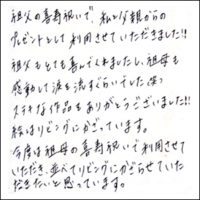 祖父の喜寿祝いで、私と父親からの
プレゼントとして利用させていただきました!!
祖父もとても喜んでくれましたし、祖母も
感動して涙を流すぐらいでした(笑)
ステキな作品をありがとうございました!!
絵はリビングにかざっています。
今度は祖母の喜寿祝いで利用させて
いただき、並べてリビングにかざらせていた
だきたいと思っています。